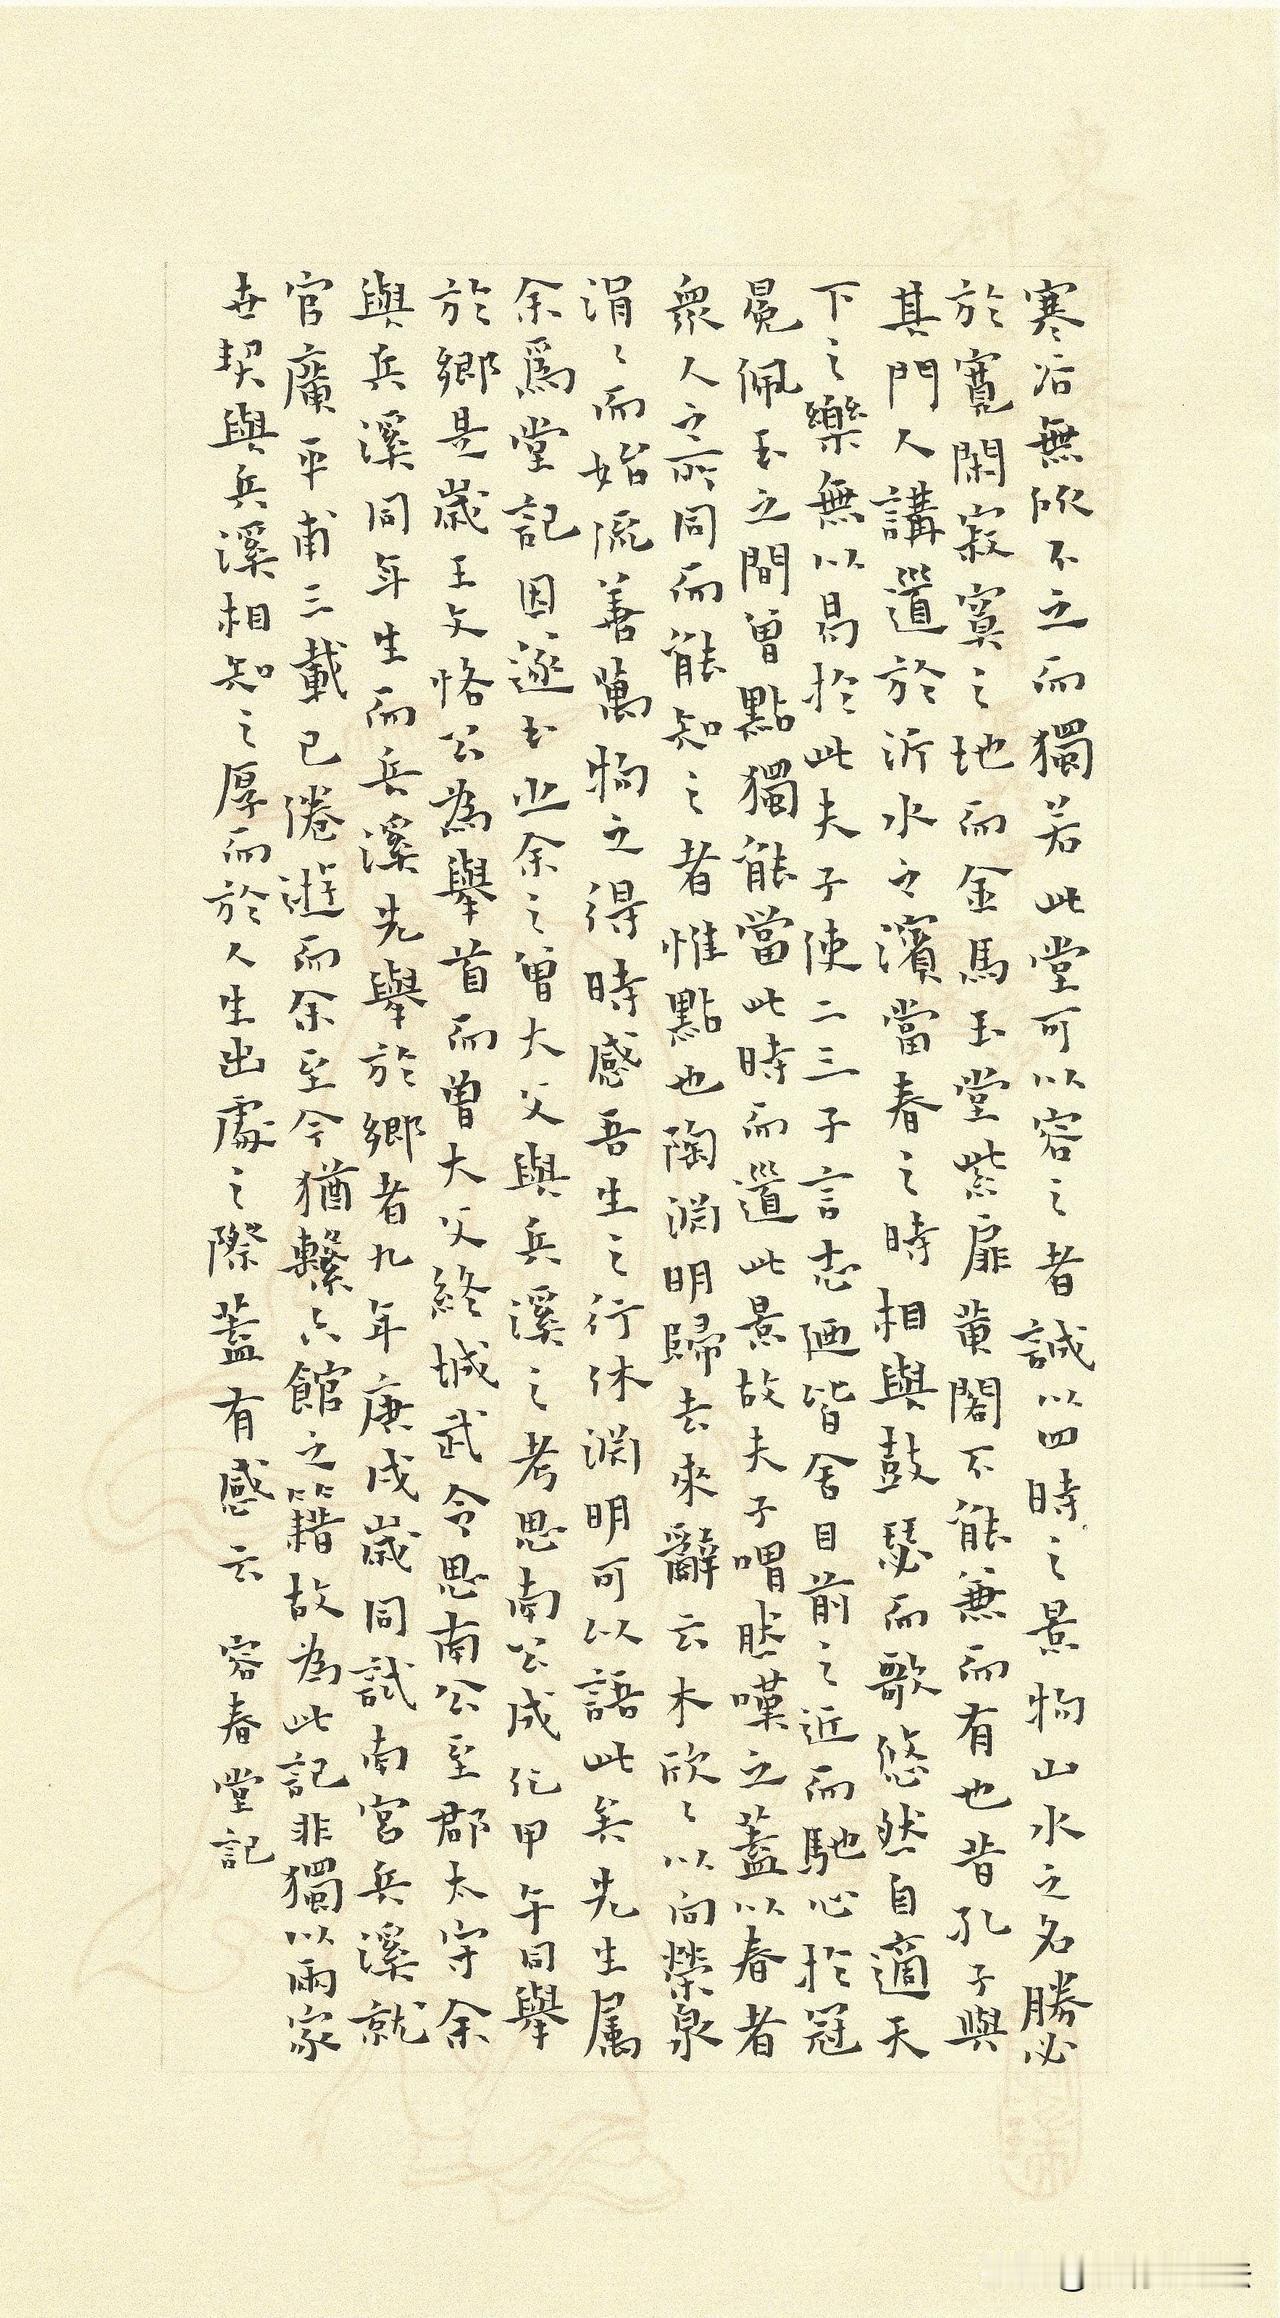 寒冱無所不之而獨若此堂可以容之者誠以四時之景物山水之名勝必
於寬閑寂寞之地而金馬玉堂紫扉黃閣不能兼而有也昔孔子與
其門人講道於沂水之濱當春之時相與鼓瑟而歌悠然自適天
下之樂無以易於此夫子使二三子言志迺皆舍目前之近而馳心於冠
冕佩玉之間曾點獨能當此時而道此景故夫子喟然嘆之蓋以春者
衆人之所同而能知之者惟點也陶淵明歸去來辭云木欣〻以向榮泉
涓〻而始流善萬物之得時感吾生之行休淵明可以語此矣先生屬
余爲堂記因遂書之余之曾大父與兵溪之考思南公成化甲午同舉
於鄉是歲王文恪公為舉首而曾大父終城武令思南公至郡太守余
與兵溪同年生而兵溪先舉於鄉者九年庚戌歲同試南宮兵溪就
官廣平甫三載已倦遊而余至今猶繫六館之籍故為此記非獨以兩家
世契與兵溪相知之厚而於人生出處之際蓋有感云 容春堂記